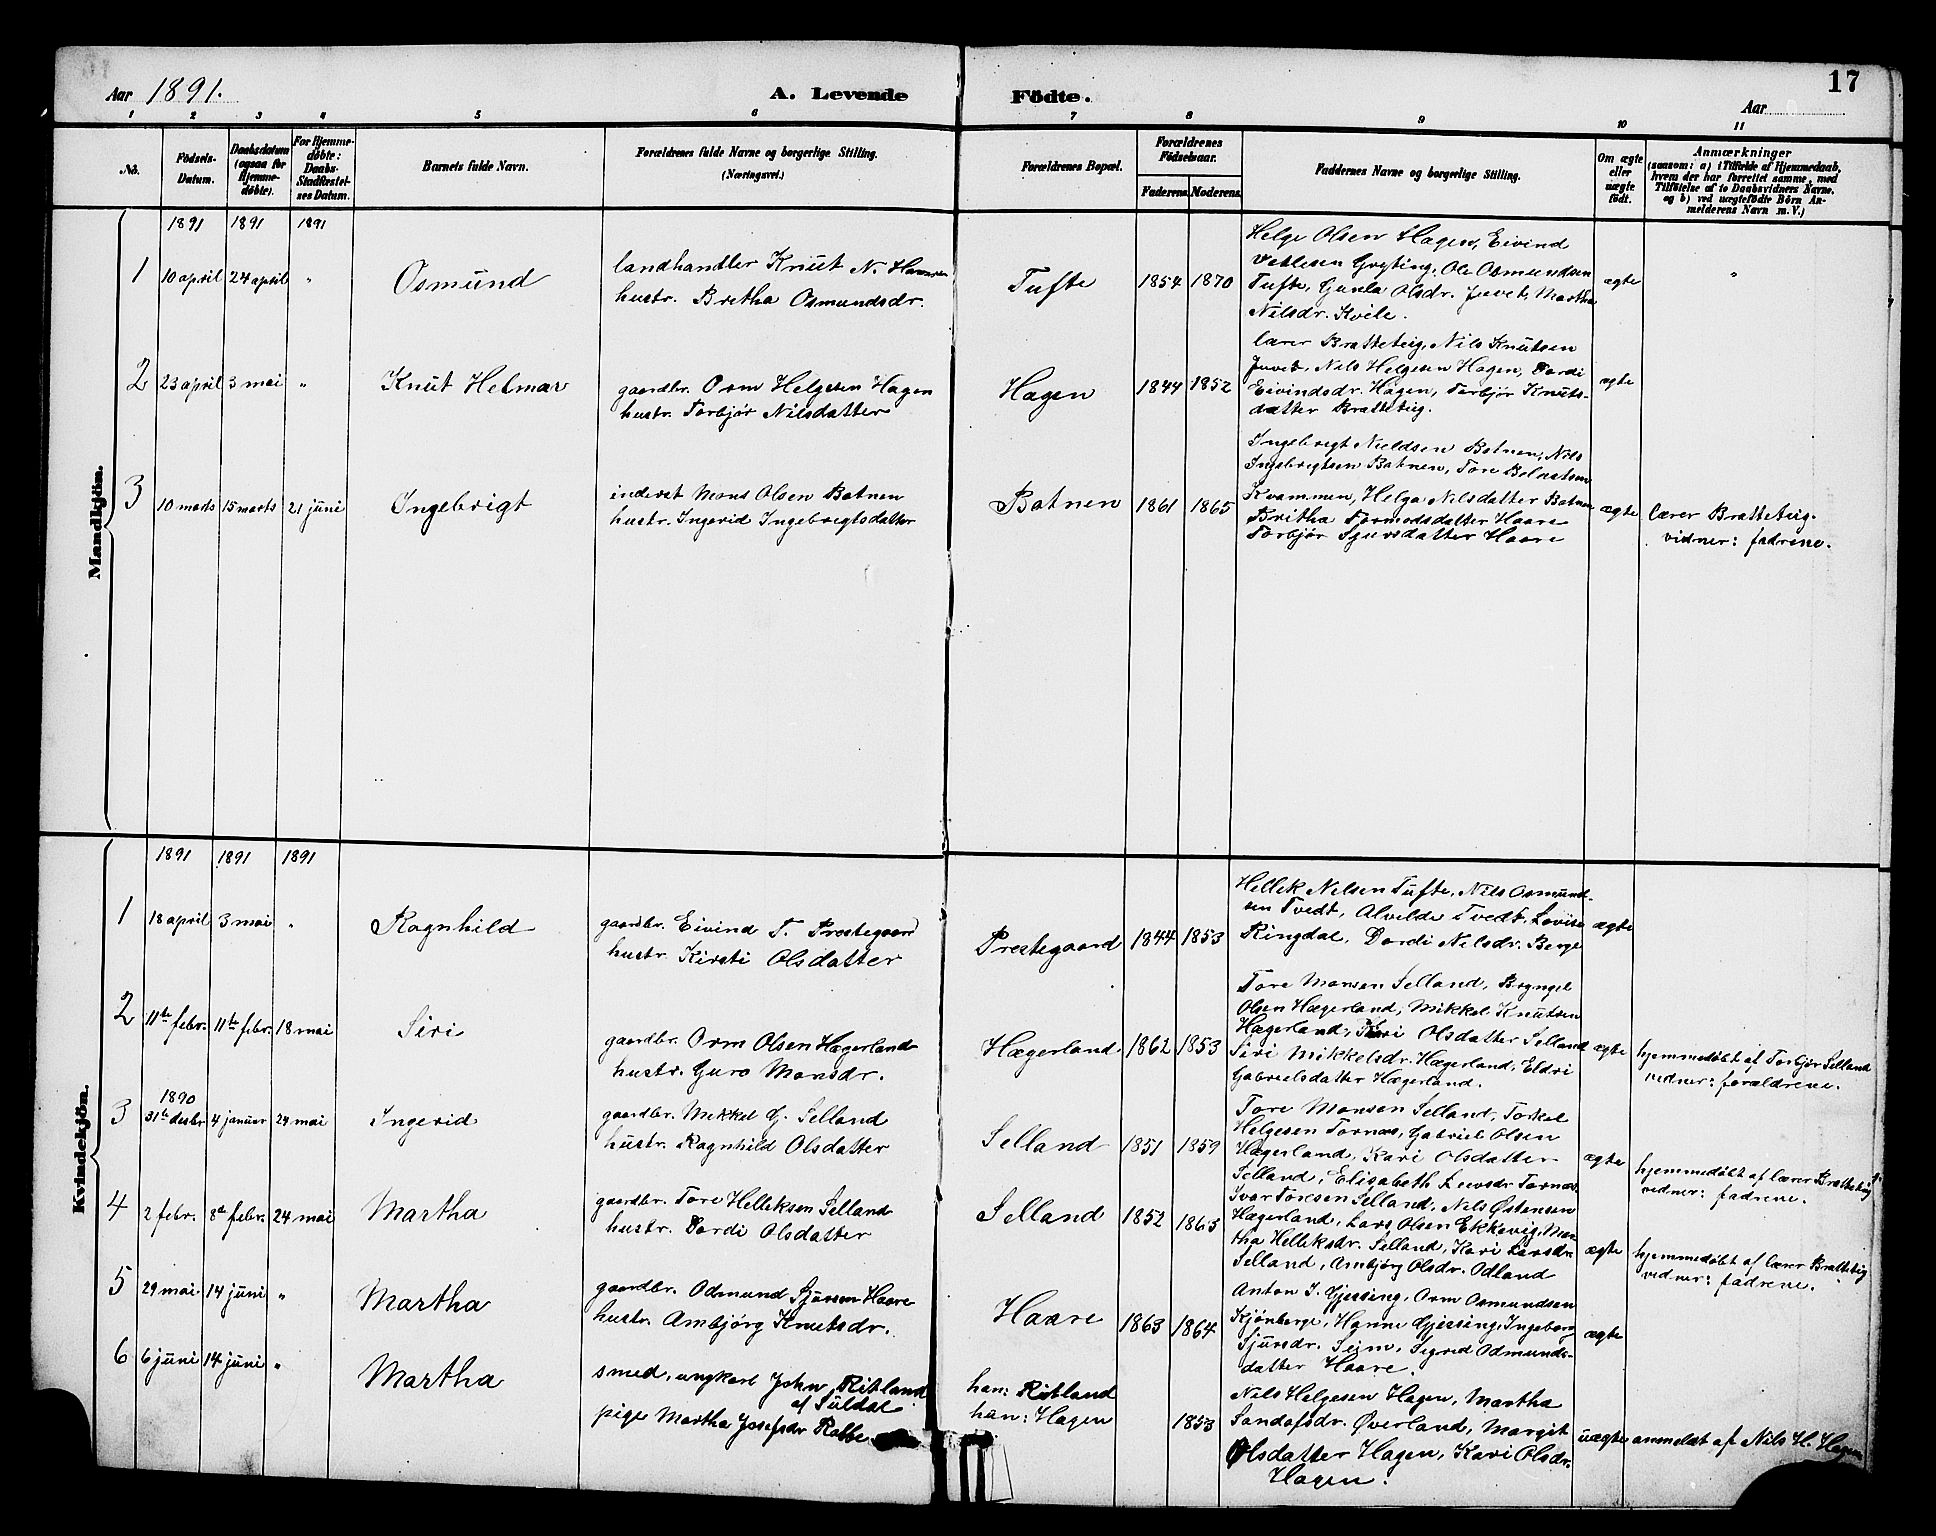 Aar 1891.
A. Levende Födte.
Aar
17
1 2 3 4 5 6 7 8 9 10 11
No.
Födsels-Datum.
Daabsdatum (ogsaa for Hjemmedöbte).
For Hjemmedøbte: Daabs-Stadfæstelses Datum.
Barnets fulde Navn.
Forældrenes fulde Navne og borgerlige Stilling.
(Næringsvei.)
Forældrenes Bopæl.
Forældrenes Födselsaar.
Faderens. Moderens.
Faddernes Navne og borgerlige Stilling.
Om ægte eller uægte födt.
Anmærkninger
(saasom: a) i Tilfælde af Hjemmedaab, hvem der har forrettet samme, med Tilföielse af to Daabsvidners Navne, og b) ved uægtefödte Börn Anmelderens Navn m. V.)
Mandkjön.
1891 1891 1891
1 10 april 24 april " Osmund
landhandler Knut N.
hustr. Bretha Osmundsdr.
Tufte 1854 1870
Helge Olsen Hagen, Eivind
Vetlesen Grysting, Ole Osmundsen
Tufte, Gunla Olsdr. Juvet, Martha
Nilsdr. Kvile.
ægte "
2 23 april 3 mai " Knut Helmar
gaardbr. Orm Helgesen Hagen
hustr. Torbjør Nilsdatter
Hagen 1844 1852
lærer Bratteteig, Nils Knutsen
Juvet, Nils Helgesen Hagen, Dordi
Eivindsdr. Hagen, Torbjør Knuts-
datter Bratteteig.
ægte
3 10 marts 15 marts 21 juni Ingebrigt
inderst Mons Olsen Botnen
hustr. Ingerid Ingebrigtsdatter
Botnen 1861 1865
Ingebrigt Nieldsen Botnen, Nils
Ingebrigtsen Botnen, Tore
Kvammen, Helga Nilsdatter Botnen
Britha Tormodsdatter Haare
Torbjør Sjursdatter Haare
ægte
lærer Bratteteig.
vidner: fadrene.
Kvindekjön.
1891 1891 1891
1 18 april 3 mai " Ragnhild
gaardbr. Eivind T. Prestegaard
hustr. Kirsti Olsdatter
Prestegaard 1844 1853
Hellek Nelsen Tufte, Nils Osmund-
sen Tvedt, Alvilde Tvedt, Lovise
Ringdal, Dordi Nilsdr. Berge
ægte
2 11te febr. 11te febr. 18 mai Siri
gaardbr. Orm Olsen Hægerland
hustr. Guro Monsdr.
Hægerland 1862 1853
Tore Monsen Selland, Bryngel
Olsen Hægerland, Mikkel Knutsen
Hægerland, Kari Olsdatter Selland
Siri Mikkelsdr. Hægerland, Eldri
Gabrielsdatter Hægerland.
ægte
hjemmedøbt af Torbjør Selland
vidner: forældrene.
1890
3 31te desbr 4 januar 24 mai Ingerid
gaardbr. Mikkel G. Selland
hustr. Ragnhild Olsdatter
Selland 1851 1859
Tore Monsen Selland, Torkel
Helgesen Tornæs, Gabriel Olsen
Hægerland, Kari Olsdatter
Selland, Elisabeth Larsdr Tornæs.
ægte
hjemmedøbt af lærer Bratteteig
vidner: fadrene.
4 2 febr. 8de febr. 24 mai Martha
gaardbr. Tore Helleksen Selland
hustr. Dordi Olsdatter
Selland 1852 1863
Ivar Toresen Selland, Nils Østensen
Hægerland, Lars Olsen Ekkevig, Mar-
tha Helleksdr. Selland, Kari Larsdr.
Selland, Ambjørg Olsdr. Odland
ægte
hjemmedøbt af lærer Bratteteig
vidner: fadrene.
5 29 mai 14 juni " Martha
gaardbr. Odmund Sjursen Haare
hustr. Ambjørg Knutsdr.
Haare 1863 1864
Anton I. Gjessing, Orm Osmundsen
Kjønberge, Hanne Gjessing, Ingeborg
Sjursdr. Seim, Sigrid Odmunds-
datter Haare.
ægte
6 6 juni 14 juni " Martha
smed, ungkarl John Ritland
af Suldal
pige Martha Josefsdr Rabbe
han: Ritland
hun: Hagen
1853
Nils Helgesen Hagen, Martha
Sandafsdr. Øverland, Margit
Olsdatter Hagen, Kari Olsdr.
Hagen.
uægte
anmeldt af Nils H. Hagen